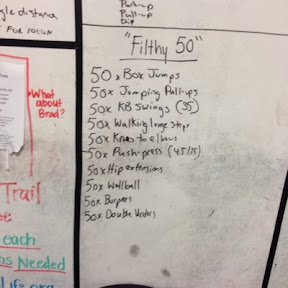 Push-up
Pull-up
Dip
gle distance
FOR 100KM
What
about
Brad?
Trail
se
each
as Needed
life.org
"Filthy 50"
50 x Box Jumps
50x Jumping Pull-ups
50x KB Swings (35)
50x Walking lunge steps
50x Knees to elbows
50x Push-press (45/35)
50x Hip extensions
50x Wallball
50x Burpees
50x Double Unders